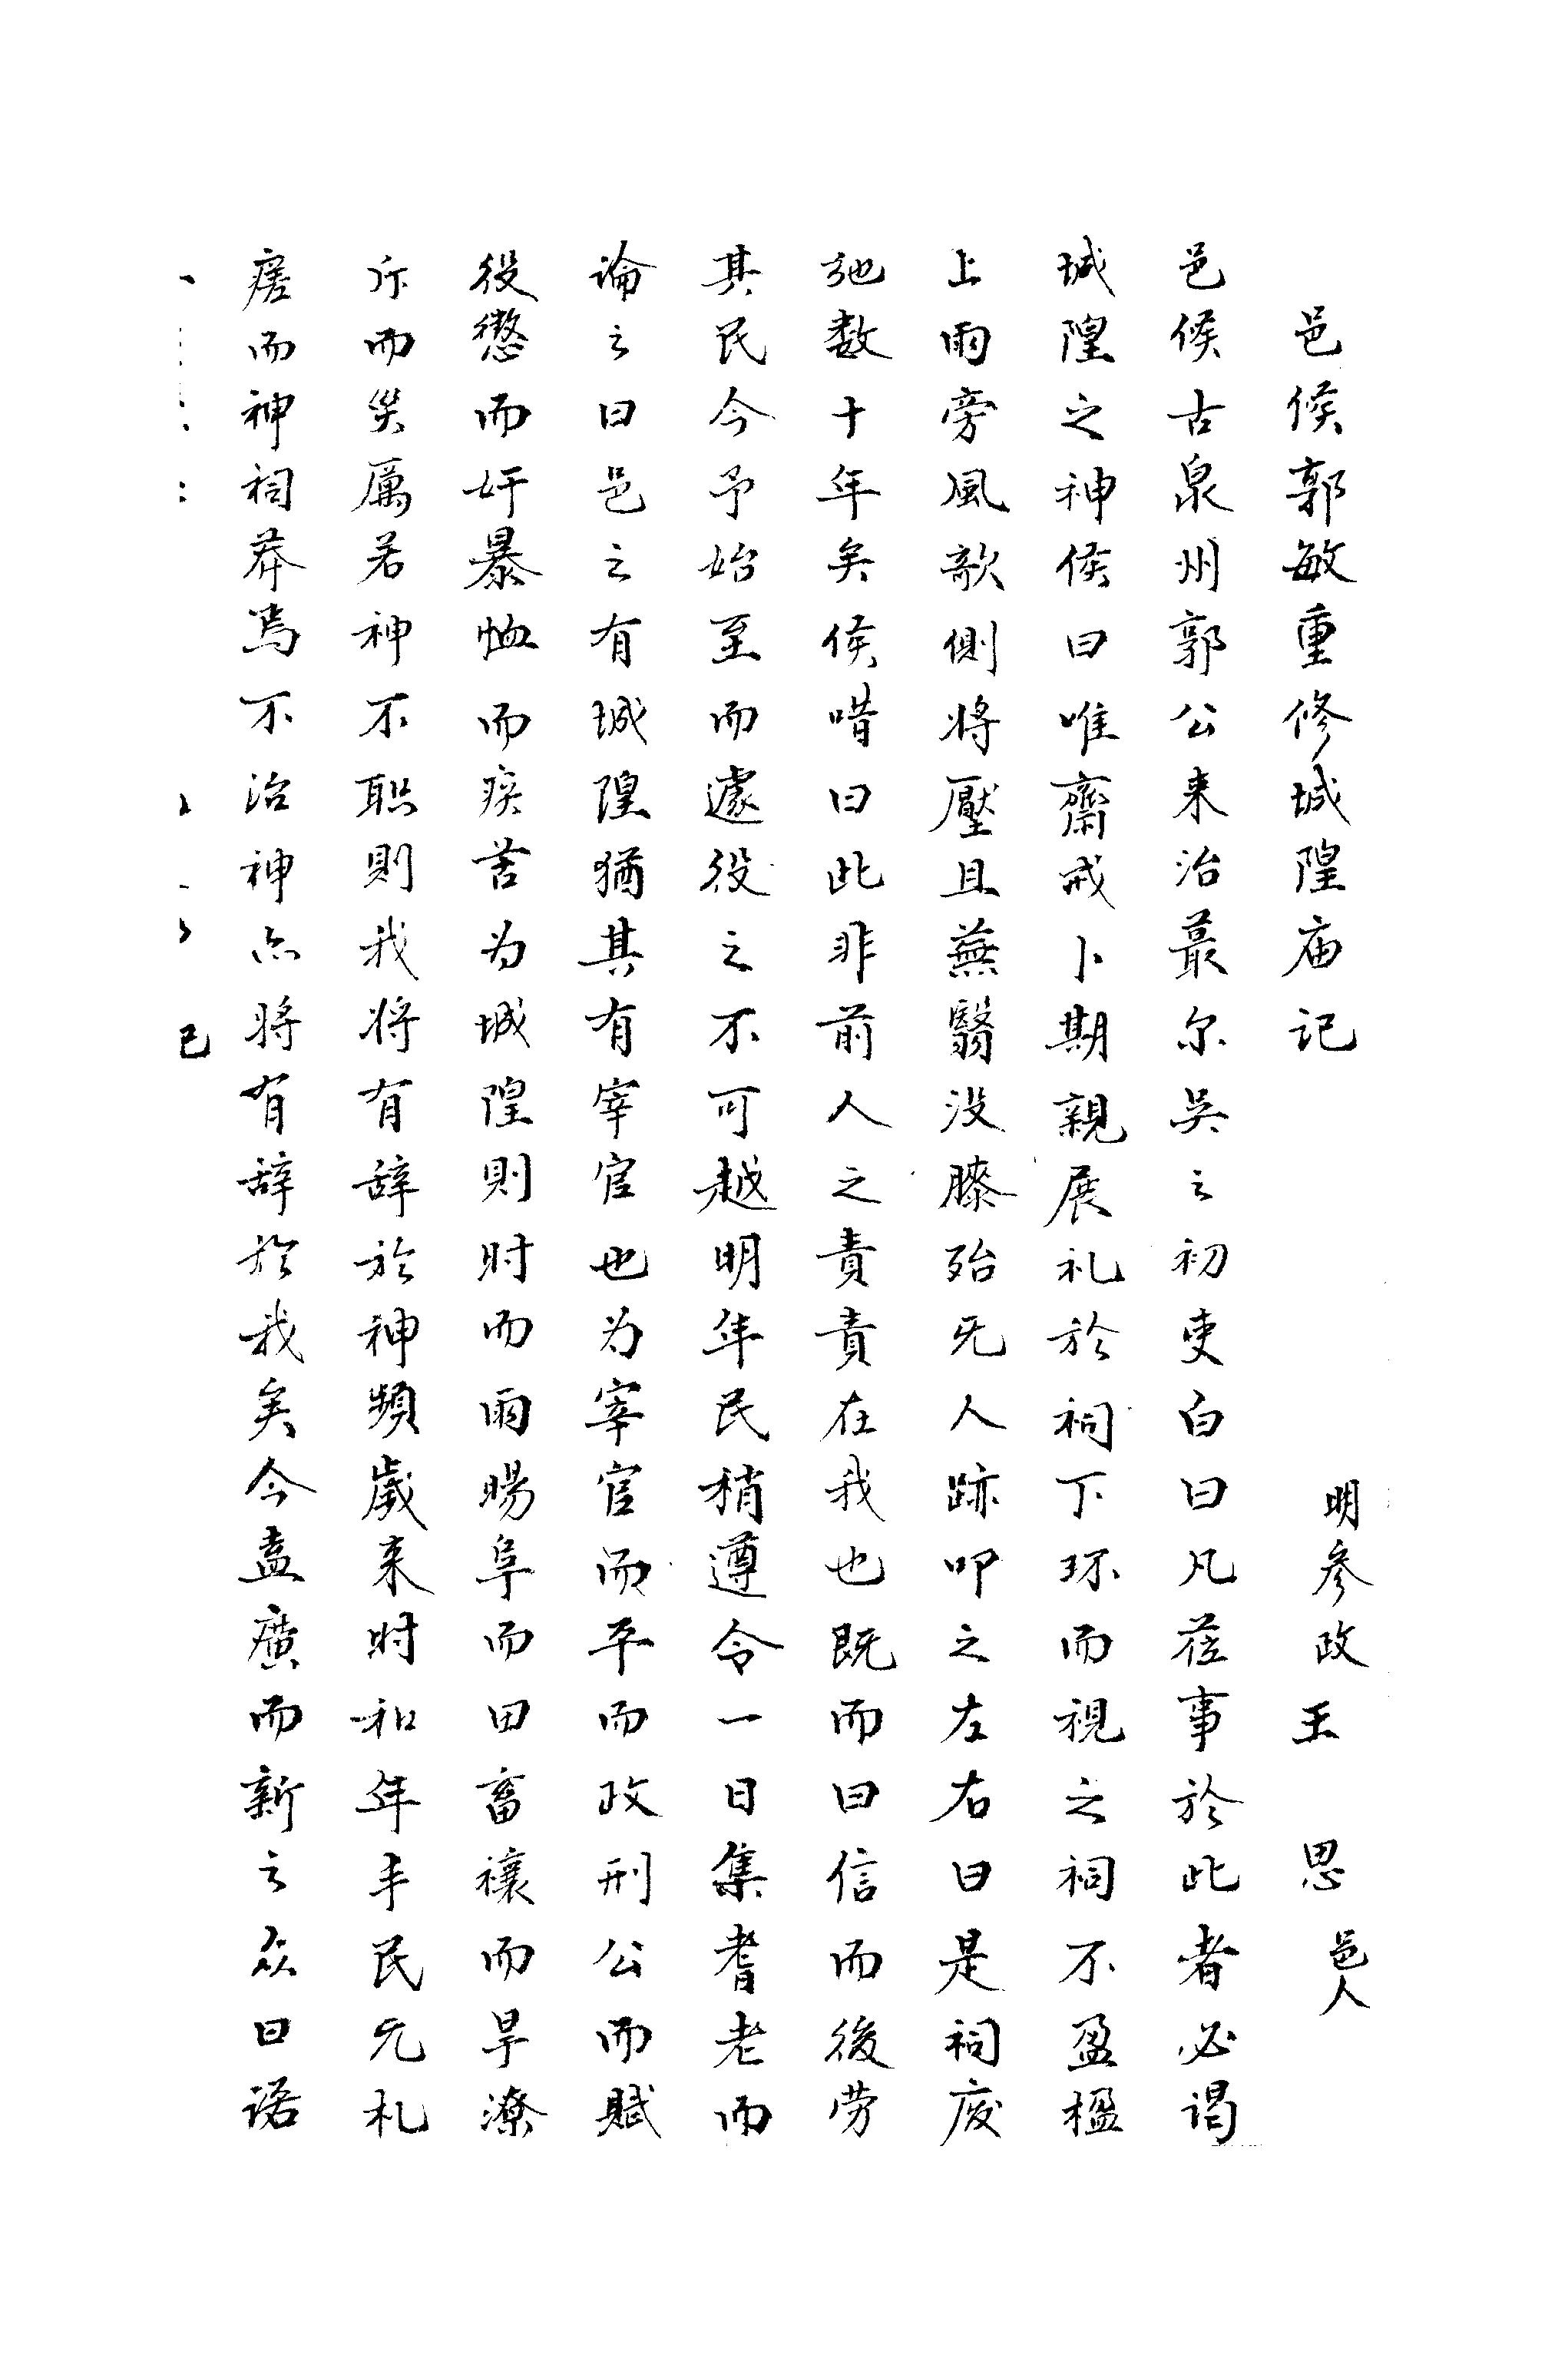 邑侯郭敏重修城隍庙记
明参政王思邑人
邑侯古泉州郭公来治蕞尔吴之初吏白曰凡莅事於此者必谒
城隍之神侯曰唯齋戒卜期親展礼於祠下环而視之祠不盈楹
上雨旁風欹侧将壓且蕪翳没膝殆无人跡叩之左右曰是祠废
弛数十年矣侯唶曰此非前人之責責在我也既而曰信而後劳
其民今予始至而遽役之不可越明年民稍遵令一日集耆老而
論之曰邑之有城隍猶其有宰官也为宰官而平而政刑公而賦
役懲而奸暴恤而疾苦为城隍則时而雨暘阜而田畜禳而旱潦
斥而災厲若神不职則我将有辞於神頻歲来时和年丰民无札
瘥而神祠莽焉不治神亦将有辞於我矣今盍廣而新之众曰诺